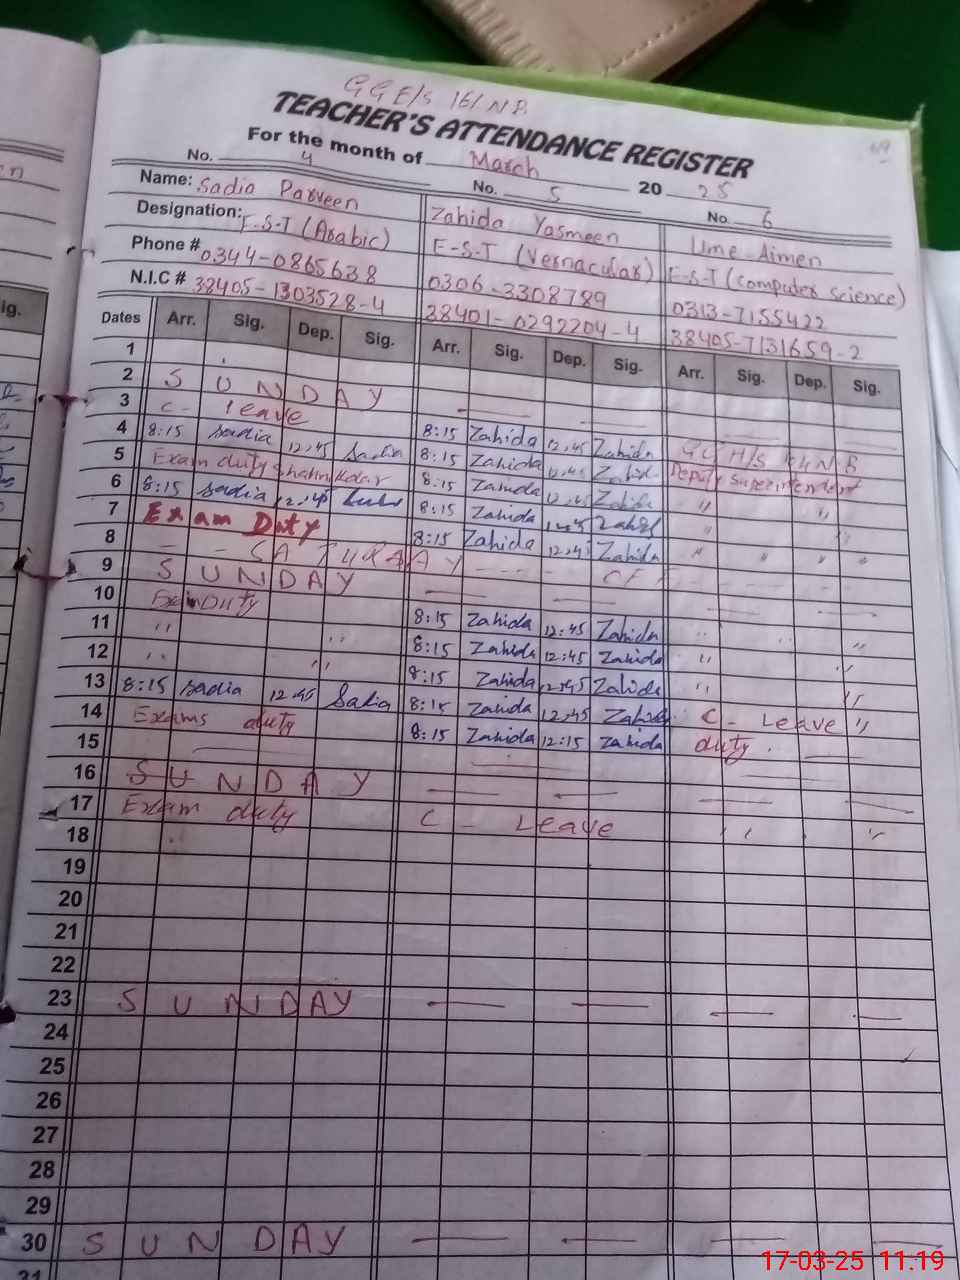 GGE/S 161 N.B.
TEACHER'S ATTENDANCE REGISTER
For the month of March 20 25
No. 4 No. 5 No. 6
Name: Sadia Parveen Zahida Yasmeen Ume-Aimen
Designation: E-S-T (Arabic) E-S-T (Vernacular) E-S-T (Computer Science)
Phone # 0344-0865638 0306-3308789 0313-7155422
N.I.C # 38405-1303528-4 38401-0292204-4 38405-7131659-2
Dates Arr. Sig. Dep. Sig. Arr. Sig. Dep. Sig. Arr. Sig. Dep. Sig.
1
2 SUNDAY
3 C- leave 8:15 Zahida 12:45 Zahida
4 8:15 Sadia 12:45 Sadia 8:15 Zahida 12:45 Zahida Deputy Superintendent
5 Exam duty 8:15 Zahida 12:45 Zahida " "
6 8:15 Sadia 8:15 Zahida 12:45 Zahida " "
7 Exam Duty 8:15 Zahida 12:45 Zahida " " "
8 SATURDAY OFF
9 SUNDAY
10 Exam Duty 8:15 Zahida 12:45 Zahida " "
11 " " 8:15 Zahida 12:45 Zahida " "
12 " " 8:15 Zahida 12:45 Zahida " "
13 8:15 Sadia 12:45 Sadia 8:15 Zahida 12:45 Zahida C - Leave "
14 Exams duty 8:15 Zahida 12:15 Zahida duty
15
16 SUNDAY
17 Exam duty C - Leave " "
18
19
20
21
22
23 SUNDAY
24
25
26
27
28
29
30 SUNDAY
31
17-03-25 11.19